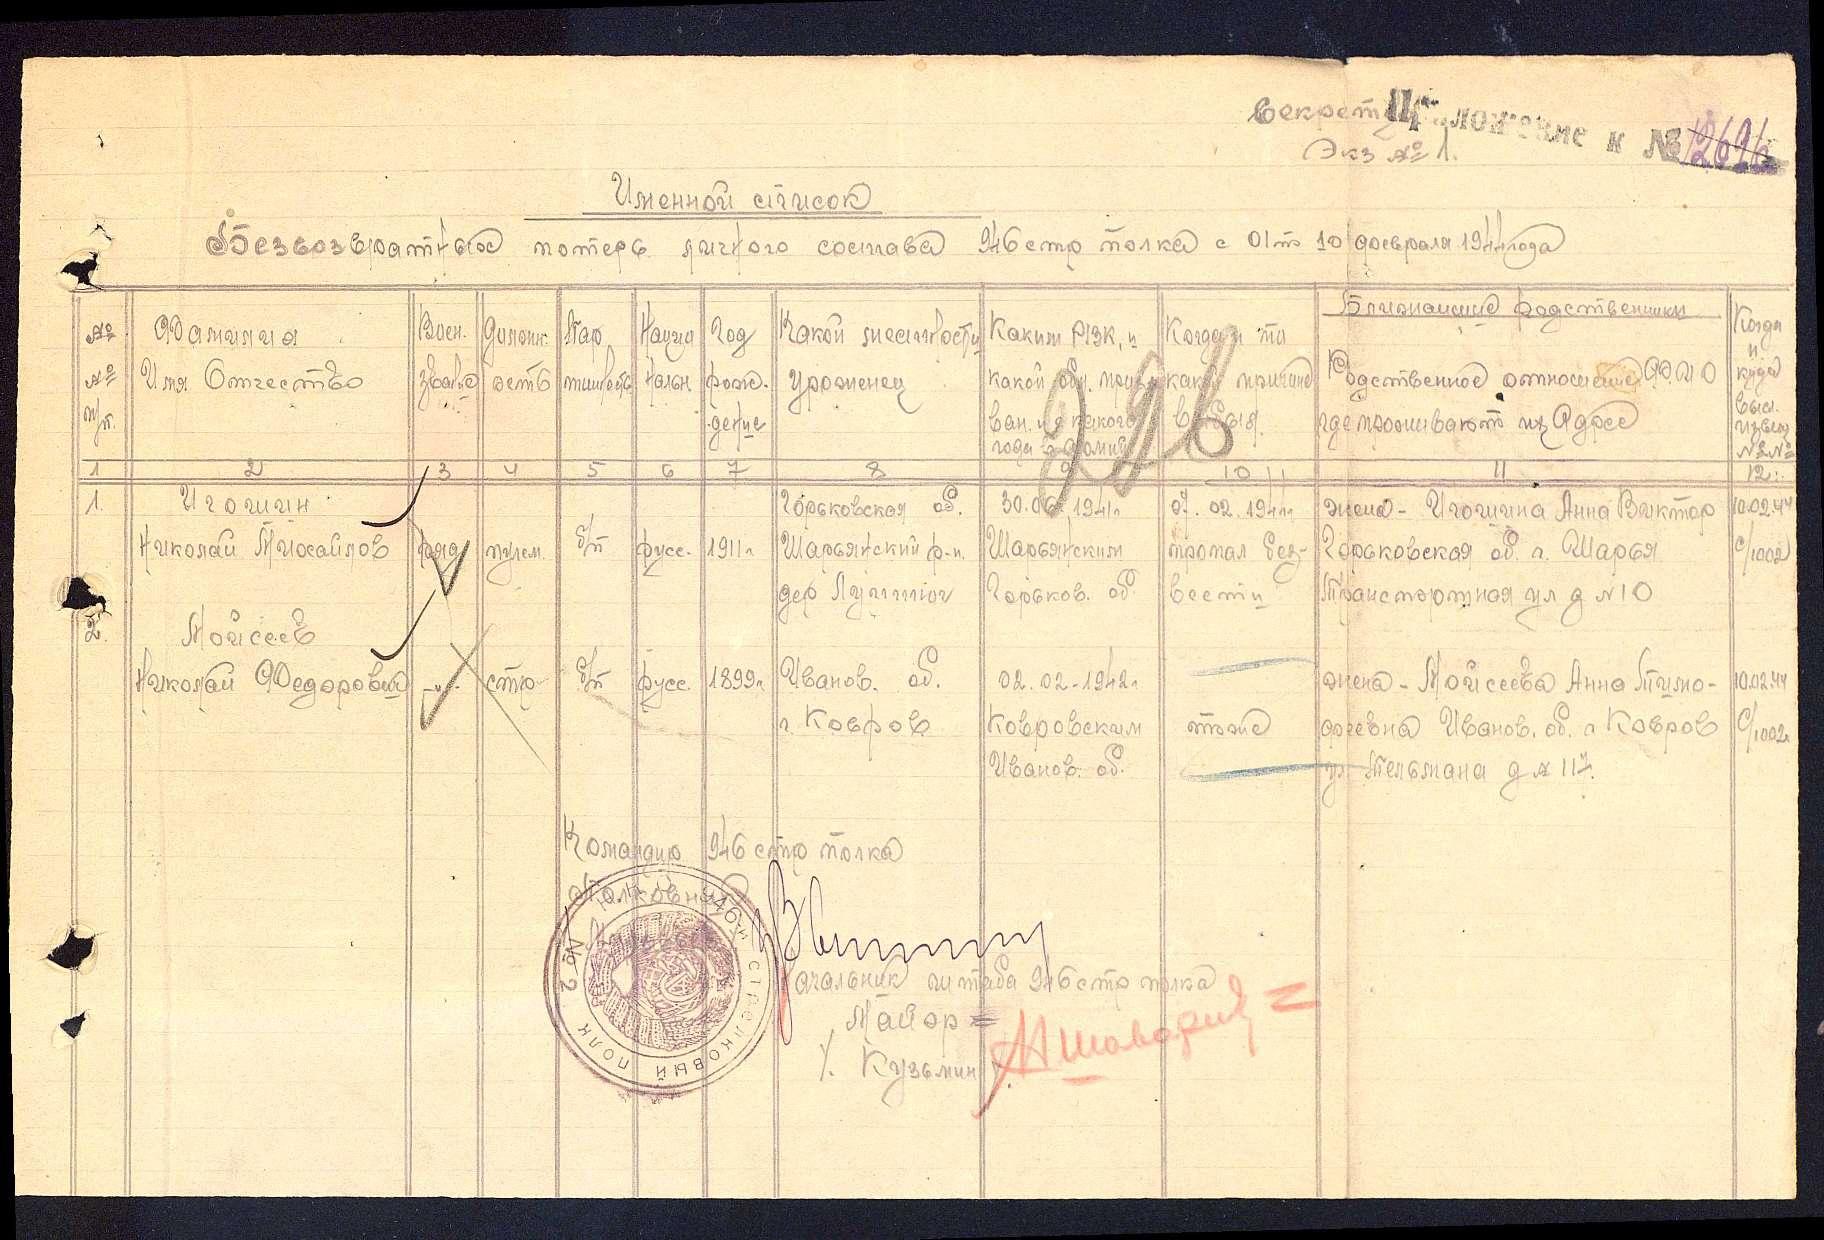 Секретно
Приложение к № 12696
Экз № 1.
Именной список
безвозвратных потерь личного состава 946 стр полка с 01 по 10 февраля 1944 года
№ № п/п.
Фамилия Имя Отчество
Воен. звание
Должн. ность
Пар тийность
Нацио нальн.
Год рож- дение
Какой местности уроженец
Каким РВК, и какой обл. призван. и с какого года в армии
Когда и по какой причине выбыл.
Ближайшие родственники
Родственное отношение Ф.И.О
где проживают их адрес
Когда и куда выс. извещ №№
226
1 2 3 4 5 6 7 8 9 10 11 12
1. Игошин Горьковская об. 30.06.1941г 07.02.1944г жена - Игошина Анна Виктор 10.02.44
Николай Михайлов ряд пулем. б/п русс. 1911г Шарьянский р-н. Шарьянским пропал без- Горьковская об. г. Шарья с/1002
дер Горьков. об. вести Транспортная ул д № 10
2. Моисеев
Николай Федорович -"- стр б/п русс. 1899г Иванов. об. 02.02-1942г жена - Моисеева Анна Тимо- 10.02.44
г. Ковров Ковровским тоже феевна Иванов. об. г Ковров с/1002г
Иванов. об. ул Тельмана д № 117.
Командир 946 стр полка
Полковник
946-й СТРЕЛКОВЫЙ ПОЛК № 2
Начальник штаба 946 стр полка
Майор =
/. Кузьмин /.